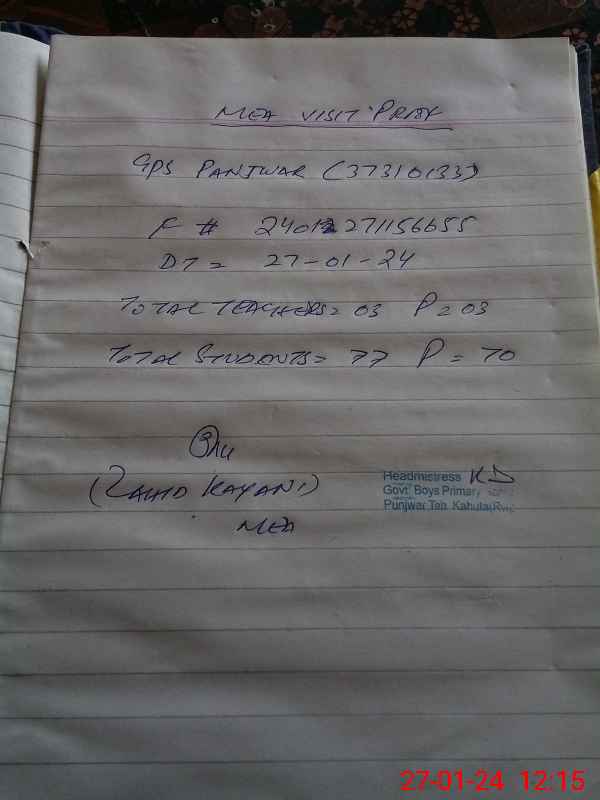 MEA VISIT PROX
GPS PANJWAR (37310133)
F # 24012271156655
DT = 27-01-24
TOTAL TEACHERS = 03 P = 03
TOTAL STUDENTS = 77 P = 70
(ZAHID KAYANI)
MEA
Headmistress
Govt: Boys Primary
Punjwar Teh. Kahuta(Rwp
27-01-24 12:15